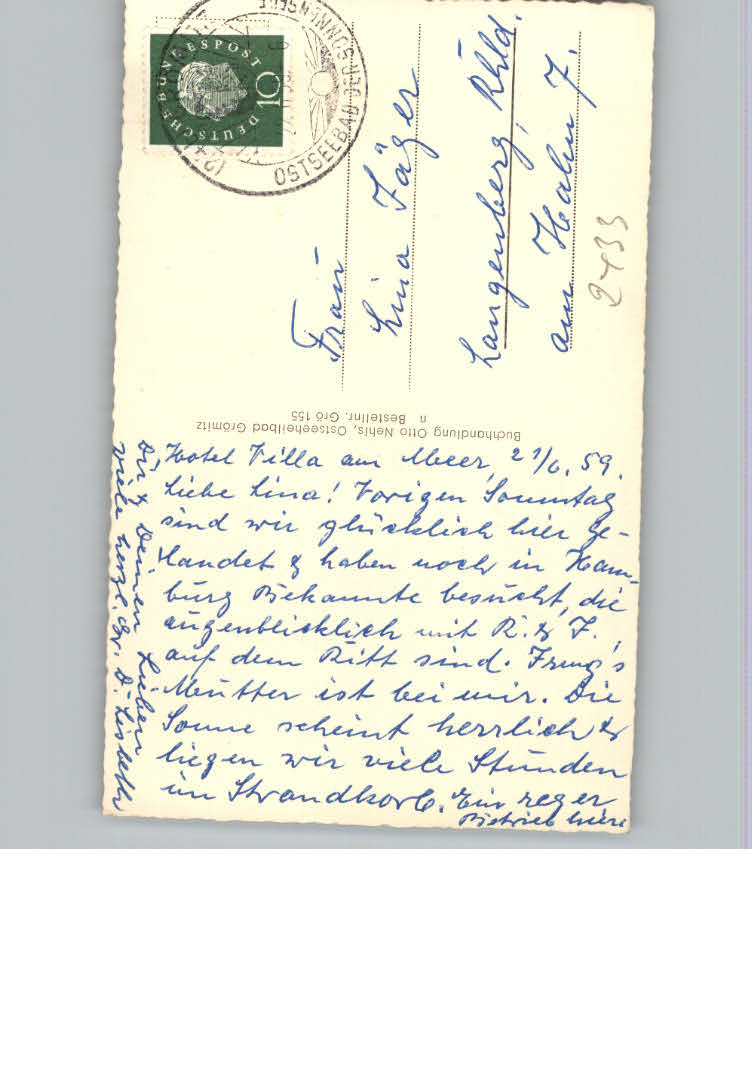 DEUTSCHE BUNDESPOST
10
OSTSEEBAD DER SONNENSEITE
Frau
Lina Jäger
Langenberg, Rhld.
am Hahn 7.
2433
Buchhandlung Otto Nehls, Ostseeheilbad Grömitz
n Bestellnr. Grö 155
Hotel Villa am Meer, 21/6. 59.
Liebe Lina! Vorigen Sonntag
sind wir glücklich hier ge-
landet & haben noch in Ham-
burg Bekannte besucht, die
augenblicklich mit R. & J.
auf dem Ritt sind.
Mutter ist bei mir. Die
Sonne scheint herrlich &
liegen wir viele Stunden
im Strandkorb. Ein reger
Betrieb hier.
Dir & Deinen Lieben
viele herzl. Gr. D. Lisbeth